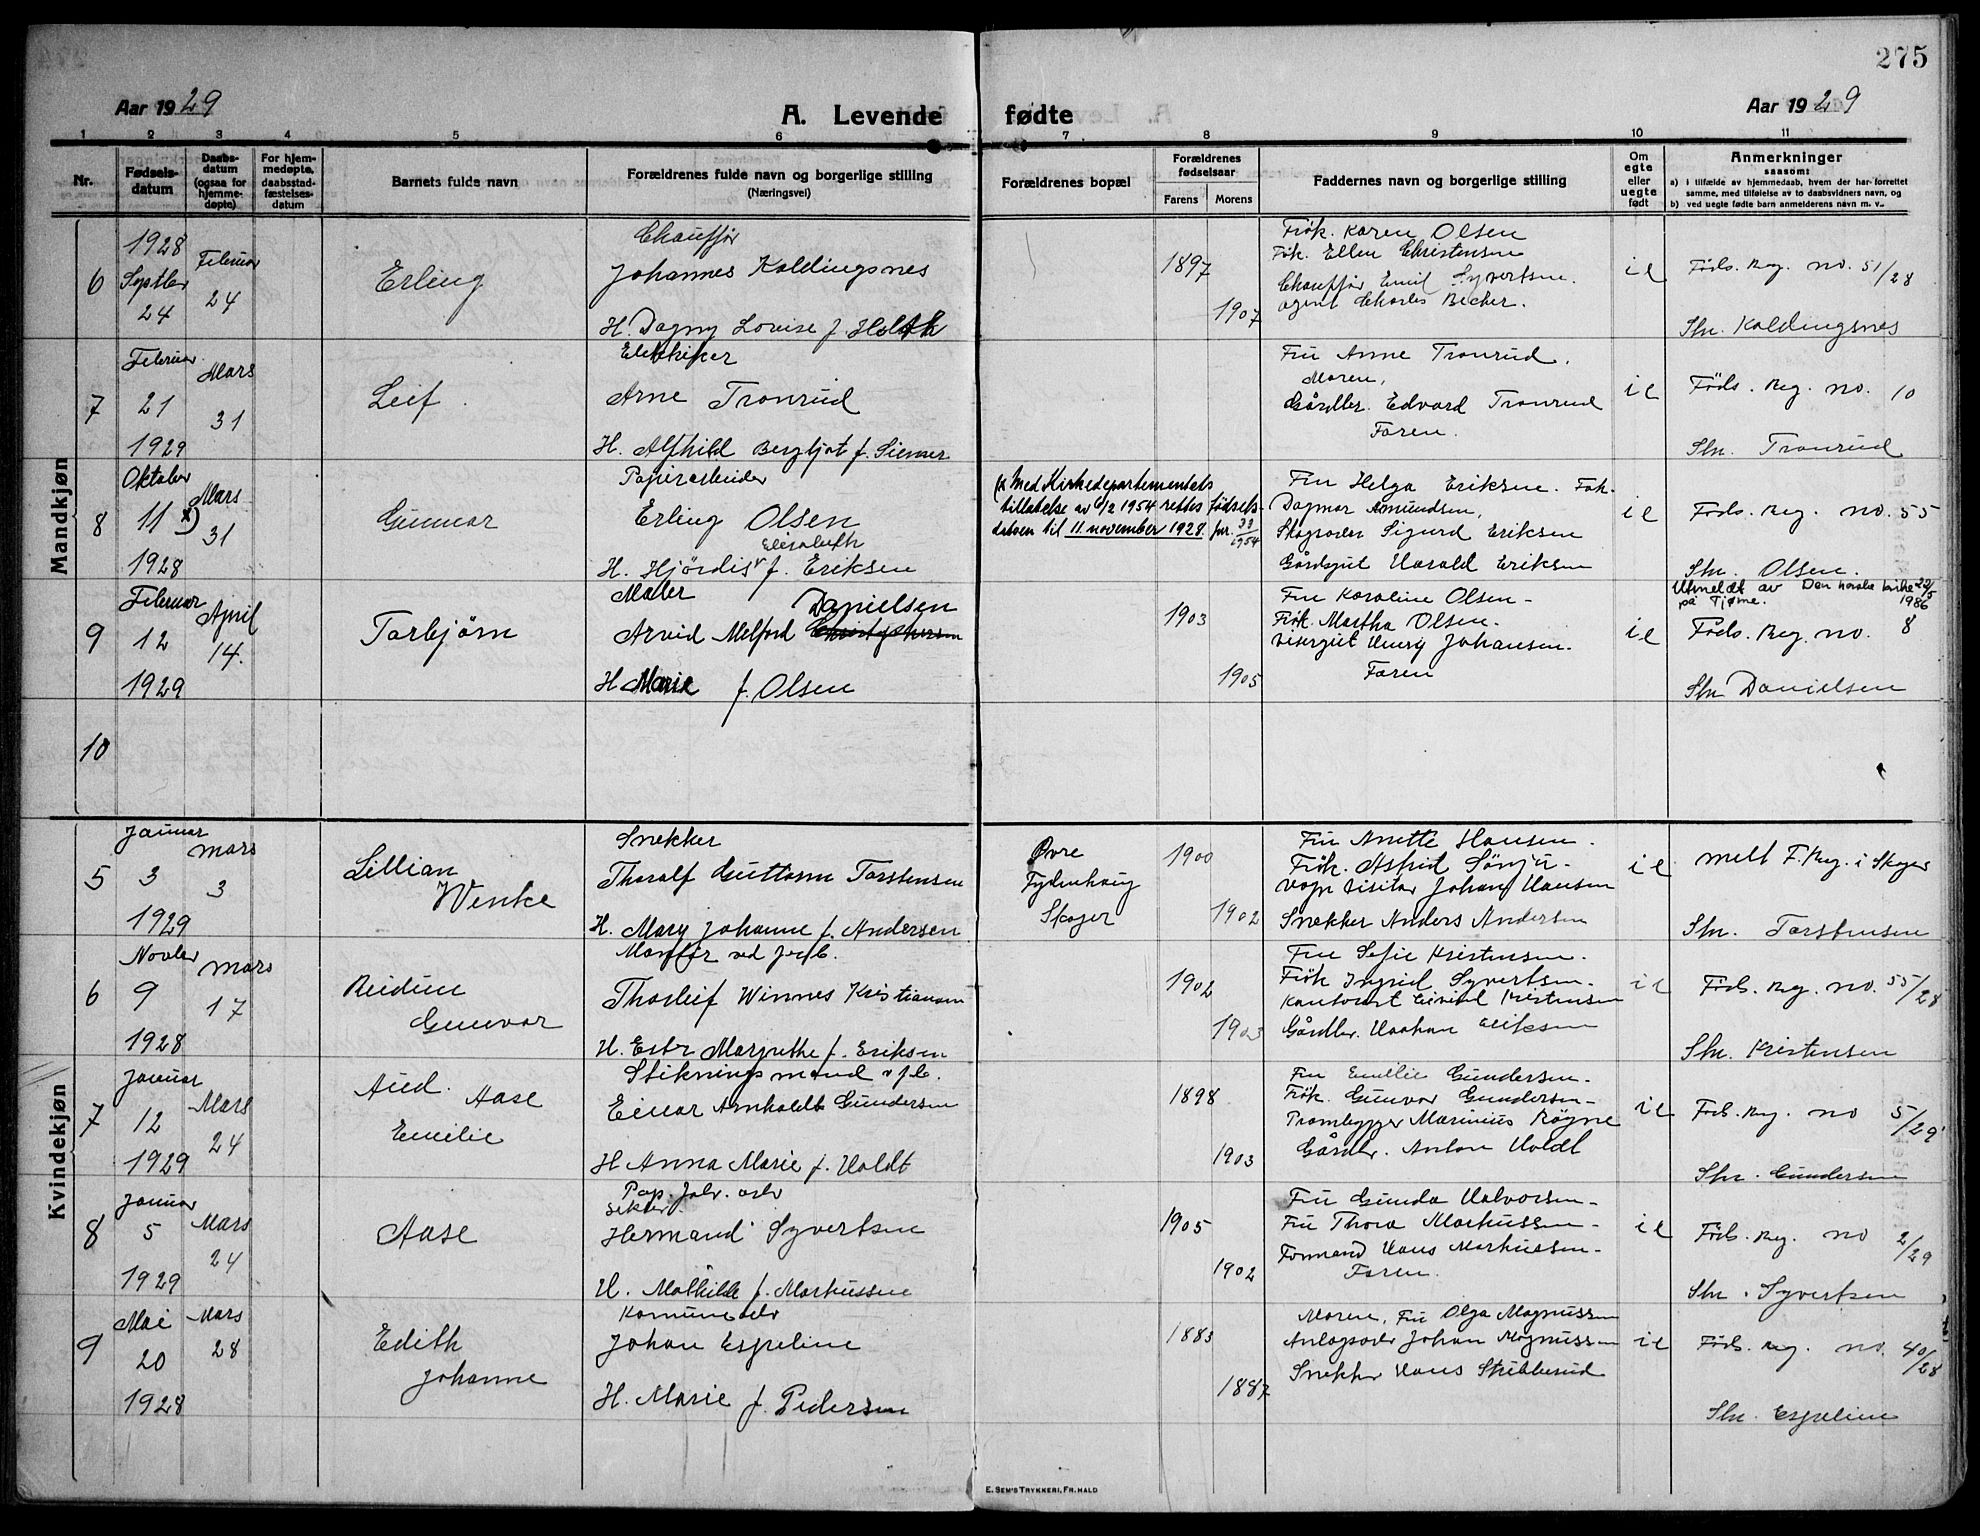 275
Aar 1929
A. Levende fødte
Aar 1929
1 2 3 4 5 6 7 8 9 10 11
Nr.
Fødsels-
datum
Daabs-
datum
(ogsaa for
hjemme-
døpte)
For hjem-
medøpte,
daabsstad-
fæstelses-
datum
Barnets fulde navn
Forældrenes fulde navn og borgerlige stilling
(Næringsvei)
Forældrenes bopæl
Forældrenes
fødselsaar
Farens Morens
Faddernes navn og borgerlige stilling
Om
egte
eller
uegte
født
Anmerkninger
saasom:
a) i tilfælde av hjemmedaab, hvem der har forrettet
samme, med tilføielse av to daabsvidners navn, og
b) ved uegte fødte barn anmelderens navn m. v..
Mandkjøn
6
1928
Septber
24
Februar
24
Erling
Chauffør
Johannes Koldingsnes
H. Dagny Lovise f. Holth
1897
1907
Frøk. Karen Olsen
Frk. Ellen Christensen
Chauffør Emil Syvertsen.
agent Charles Becker.
ie
Føds. Reg. no. 51/28
Stn. Koldingsnes
7
Februar
21
1929
Mars
31
Leif
Elektriker
Arne Tronrud
H. Alfhild Bergljot f.
Fru Anne Tronrud.
Moren,
Gårdbr. Edvard Tronrud
Faren.
ie
Føds. Reg. no. 10
Stn. Tronrud
8
Oktober
11 x)
1928
Mars
31
Gunnar
Papirarbeider
Erling Olsen
Elisabeth
H. Hjørdis v f. Eriksen
x Med Kirkedepartementets
tillatelse av 6/2 1954 rettes fødsels-
datoen til 11. november 1928. jnr. 33/1954
Fru Helga Eriksen. Frk.
Dagmar Amundsen,
Skogsarb. Sigurd Eriksen
Gårdsgut Harald Eriksen
ie
Føds. Reg. no. 55
Stn. Olsen.
9
Februar
12
1929
April
14.
Torbjørn
Maler
Danielsen
Arvid Melford
H Marie f. Olsen
1903
1905
Fru Karoline Olsen -
Frk. Martha Olsen -
visergut Henry Johansen.
Faren
ie
Utmeldt av Den norske kirke 22/5
på Tjøme. 1986
Føds. Reg. no. 8
Stn Danielsen
10
Kvindekjøn
5
Januar
3
1929
mars
3
Lillian
Wenke
Snekker
Thoralf Guttorm Torstensen
H. Mary Johanne f. Andersen
Øvre
Fydenhaug
Skoger
1900
1902
Fru Anette Hansen.
Frøk. Astrid Sønju -
Vogn visitør Johan Hansen
Snekker Anders Andersen
ie
melt F. Reg. i Skoger
Stn. Torstensen
6
Novber
9
1928
mars
17
Reidun
Gunvor
Montør ved jernb.
Thorleif Winnes Kristiansen
H. Ester Margrethe f. Eriksen
1902
1903
Fru Sofie Kristensen.
Frøk Ingrid Syvertsen.
Kontorist Eivind Kristensen
Gårdbr. Haakon Eriksen
ie
Føds. Reg. no. 55/28
Stn. Kristensen
7
Januar
12
1929
Mars
24
Aud. Aase
Emilie
Stikningsmand v jb.
Einar Arnholdt Gundersen
H Anna Marie f. Holdt
1898
1903
Fru Emilie Gundersen -
Frøk. Gunvor Gundersen -
Trombygger Marinius Røgne
Gårdbr. Anton Holdt
ie
Føds. Reg. no 5/29
Stn. Gundersen
8
Januar
5
1929
Mars
24
Aase
Pap. fabr. arb
Hermand Syvertsen
H. Mathilde f. Markussen
1905
1902
Fru Gunda Halvorsen -
Fru Thora Markussen -
Formand Hans Markussen -
Faren.
ie
Føds. Reg. no 2/29
Stn. Syvertsen
9
Mai
20
1928
Mars
28
Edith
Johanne
Komunearb
Johan Espeline
H. Marie f. Pedersen
1883
1887
Moren, Fru Olga Magnussen
Anlagsarb Johan Magnussen
Snekker Hans Stubberud
ie
Føds. Reg. no. 40/28
Stn. Espeline
E. Sem's Trykkeri, Fr.hald